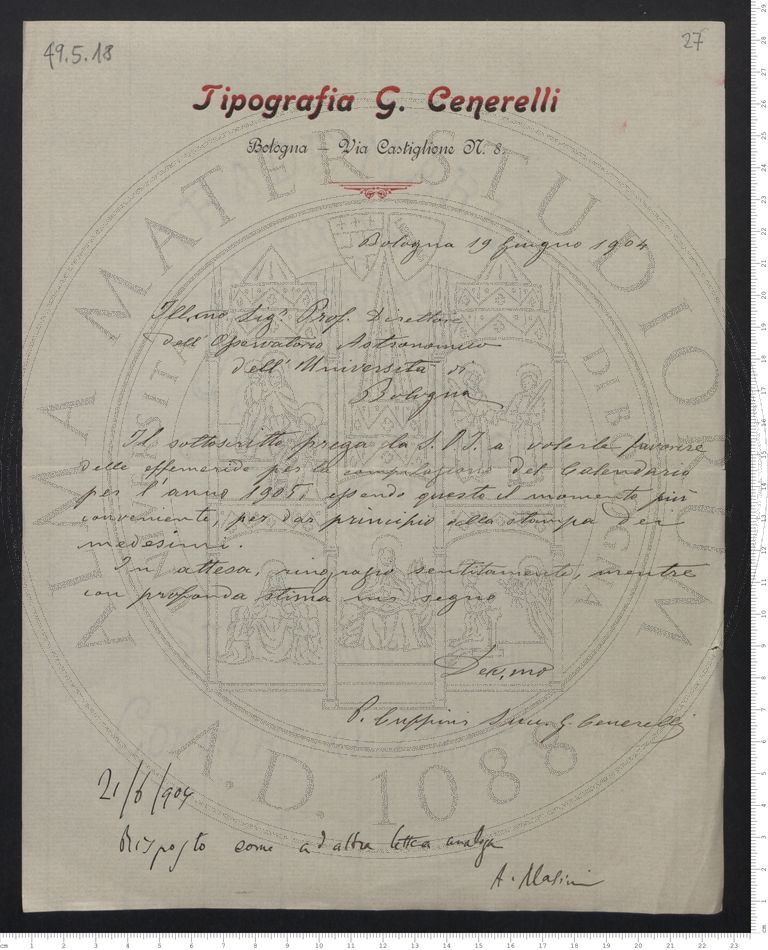 49.5.18
27
Tipografia G. Cenerelli
Bologna – Via Castiglione N. 8.
Bologna 19 Giugno 1904
Ill.mo Sigr. Prof. Direttore
dell'Osservatorio Astronomico
dell'Università di
Bologna
Il sottoscritto prega la S. V. I. a volerle favorire
delle effemeride per la compilazione del Calendario
per l'anno 1905, essendo questo il momento più
conveniente, per dar principio alla stampa dei
medesimi.
In attesa, ringrazio sentitamente, mentre
con profonda stima mi segno
Dev.mo
P. Cuppini Succ. G. Cenerelli
21/6/904
Risposto come ad altra lettera analoga
A. Masini
ALMA MATER STUDIORUM
A.D. 1088